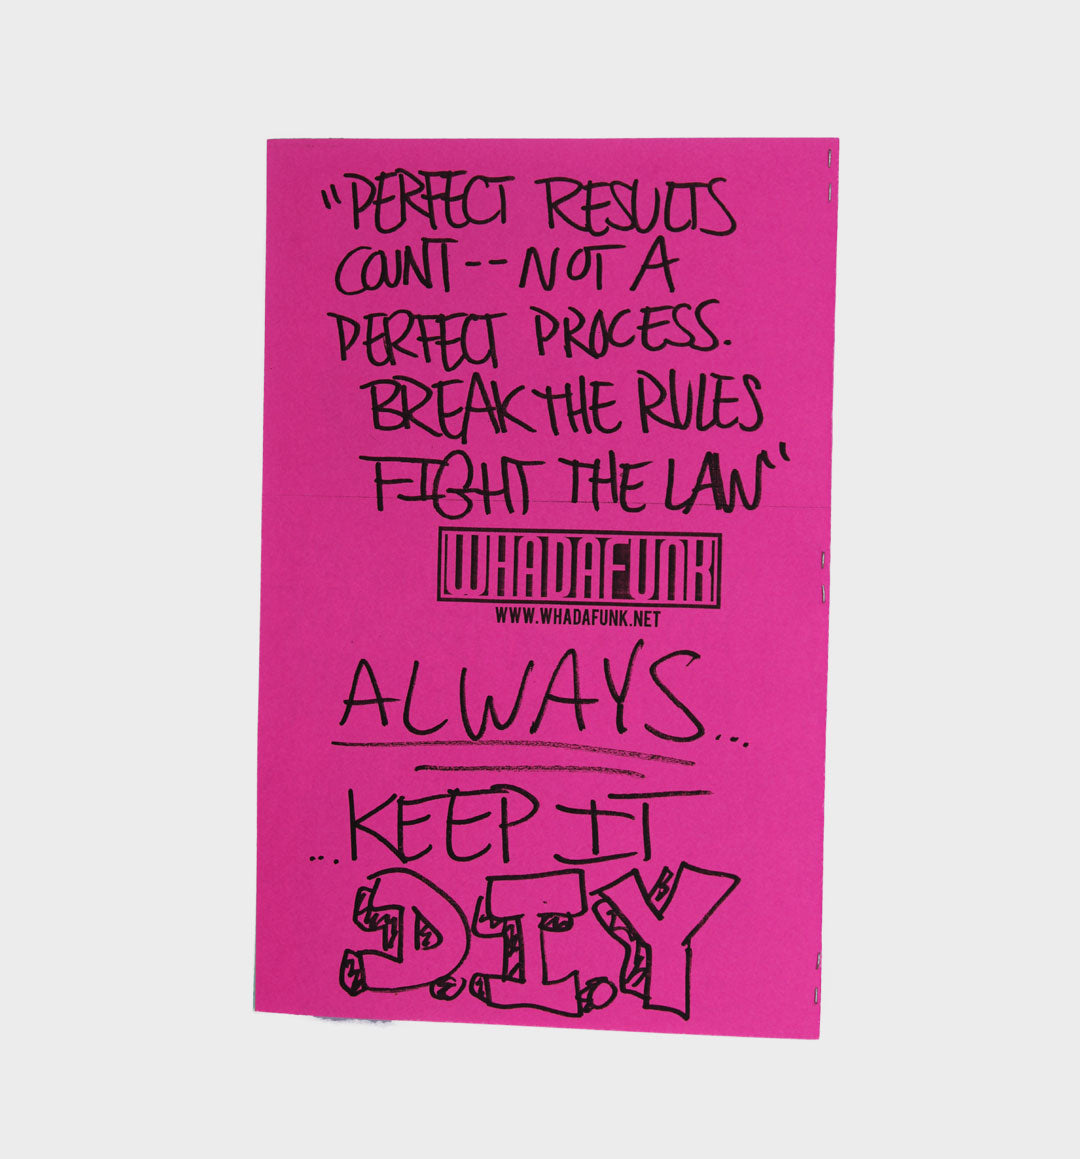 "PERFECT RESULTS
COUNT -- NOT A
PERFECT PROCESS.
BREAK THE RULES
FIGHT THE LAW"
WHADAFUNK
WWW.WHADAFUNK.NET
ALWAYS...
...KEEP IT
D.I.Y